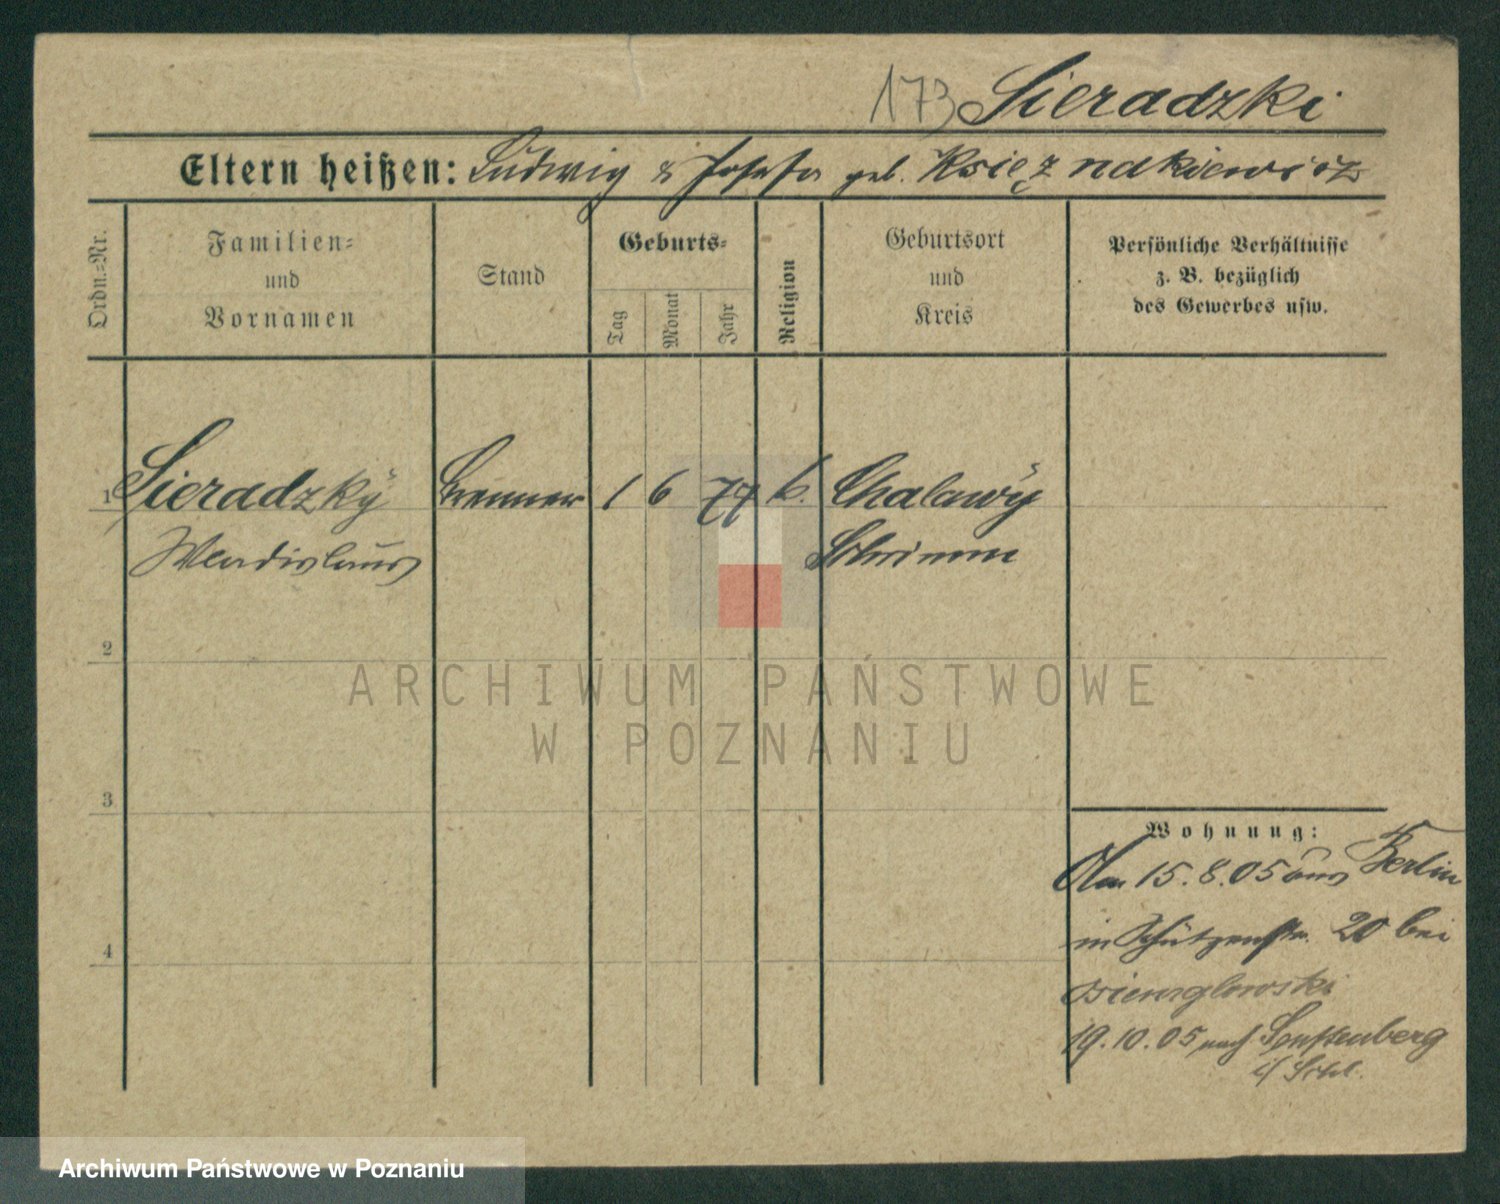 173 Sieradzki
Eltern heißen: Ludwig & Josefa geb. Księżnakiewicz
Ordn.=Nr.
Familien=
und
Vornamen
Stand
Geburts=
Tag
Monat
Jahr
Religion
Geburtsort
und
Kreis
Persönliche Verhältnisse
z. B. bezüglich
des Gewerbes usw.
1 Sieradzkÿ Brenner 1 6 77 k. Chalawÿ
Wladislaus Schrimm
2
3
4
Wohnung:
Am 15.8.05 aus Berlin
in Schützenstr. 20 bei
19.10.05 nach Senftenberg
ARCHIWUM PAŃSTWOWE
W POZNANIU
Archiwum Państwowe w Poznaniu